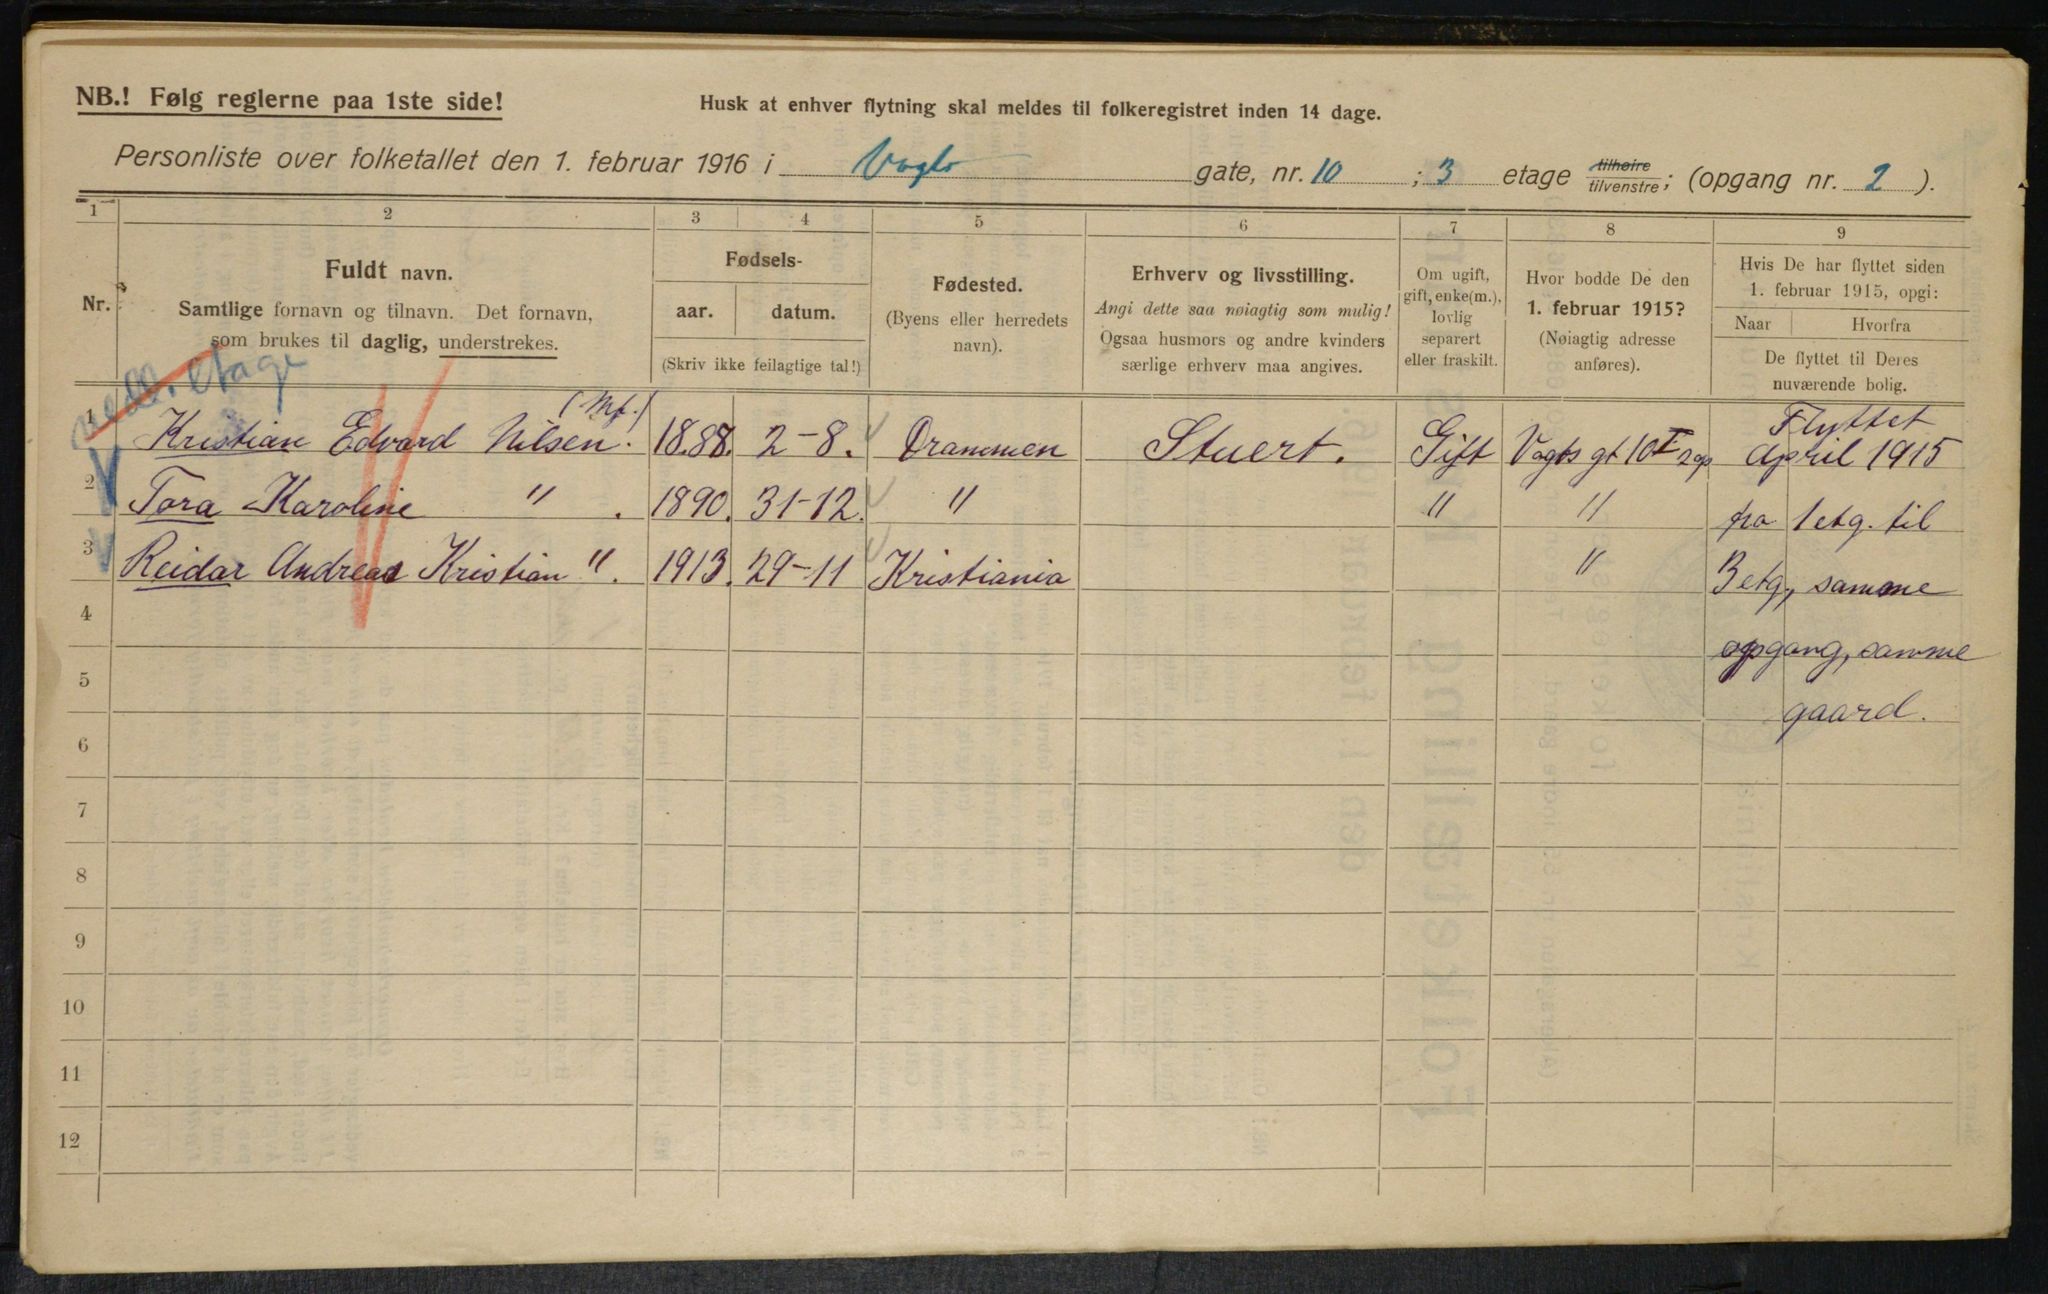 NB.! Følg reglerne paa 1ste side!
Husk at enhver flytning skal meldes til folkeregistret inden 14 dage.
Personliste over folketallet den 1. februar 1916 i Vogts gate, nr. 10; 3 etage tilhøire/tilvenstre; (opgang nr. 2).
1 2 3 4 5 6 7 8 9
Nr.
Fuldt navn.
Samtlige fornavn og tilnavn. Det fornavn,
som brukes til daglig, understrekes.
Fødsels-
aar. datum.
(Skriv ikke feilagtige tal!)
Fødested.
(Byens eller herredets
navn).
Erhverv og livsstilling.
Angi dette saa nøiagtig som mulig!
Ogsaa husmors og andre kvinders
særlige erhverv maa angives.
Om ugift,
gift, enke(m.),
lovlig
separert
eller fraskilt.
Hvor bodde De den
1. februar 1915?
(Nøiagtig adresse
anføres).
Hvis De har flyttet siden
1. februar 1915, opgi:
Naar Hvorfra
De flyttet til Deres
nuværende bolig.
etage
(Mf.)
1 Kristian Edvard Nilsen. 1888. 2-8. Drammen Stuert. Gift Vogts gt 10 I 2 op Flyttet April 1915
2 Tora Karoline " . 1890. 31-12. " " " fra 1 etg. til
3 Reidar Andreas Kristian ". 1913. 29-11 Kristiania " 3 etg, samme
4 opgang, samme
5 gaard.
6
7
8
9
10
11
12